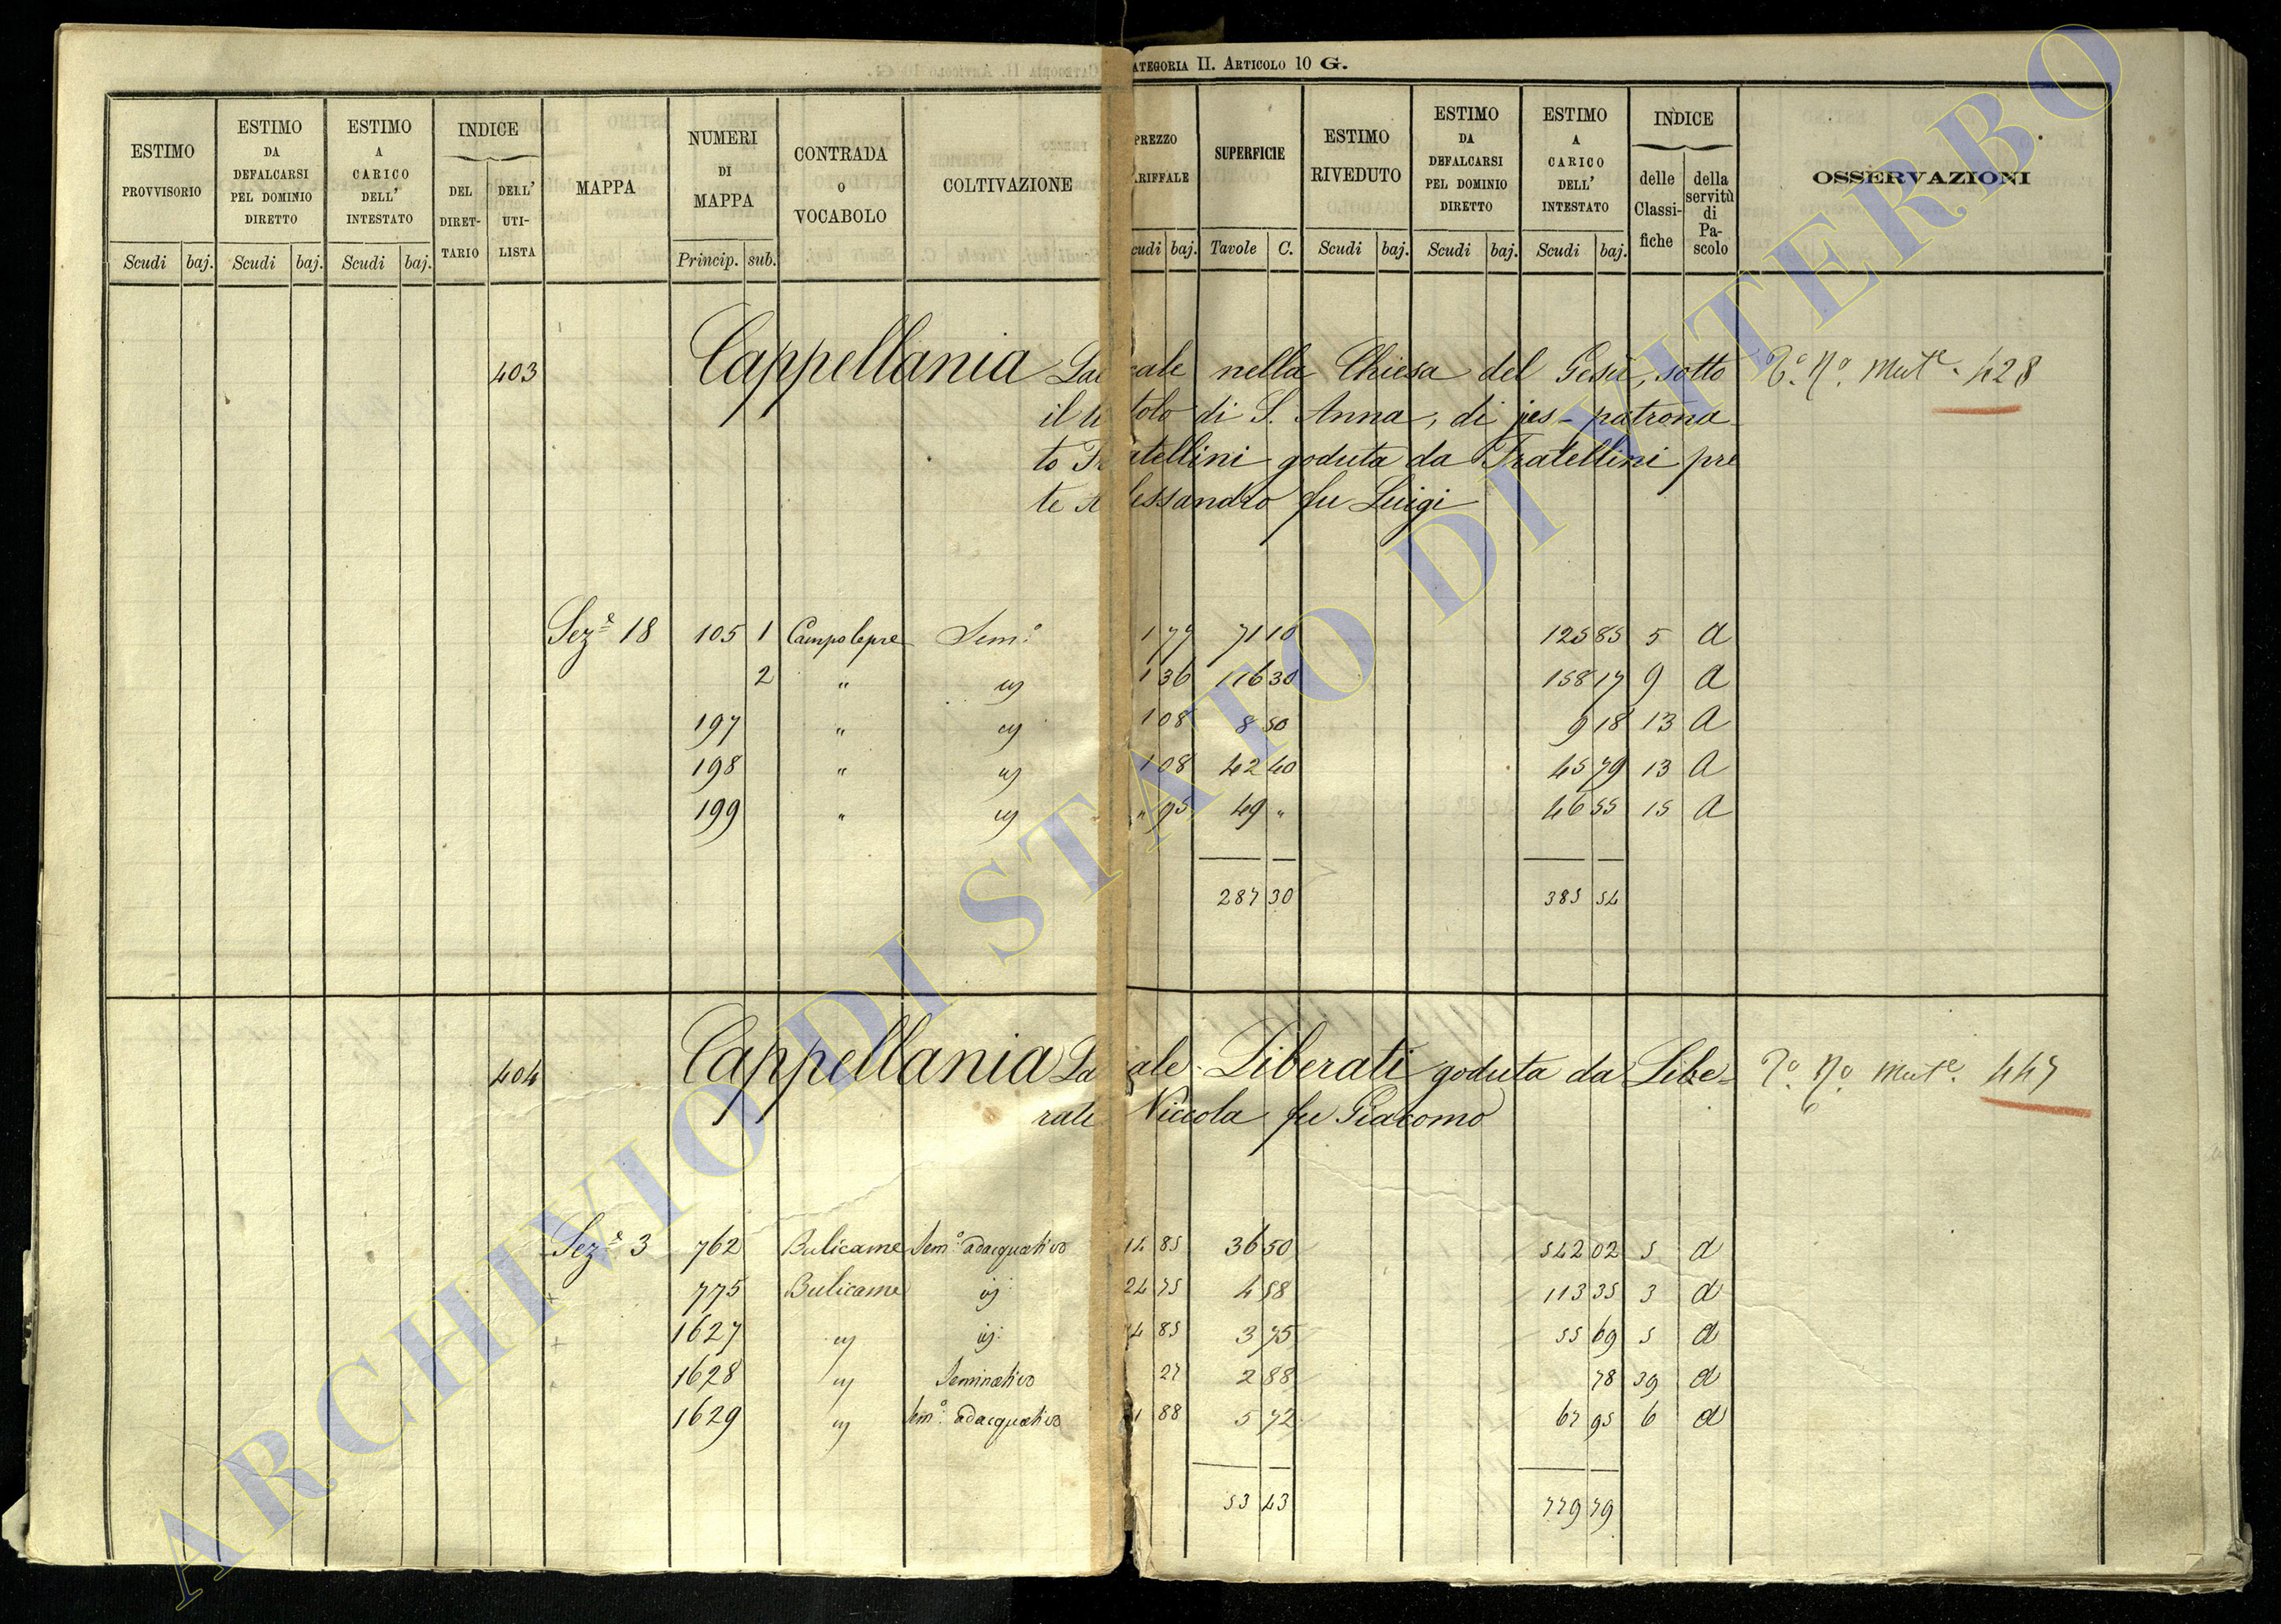 ATEGORIA II. ARTICOLO 10 G.
ESTIMO PROVVISORIO
ESTIMO DA DEFALCARSI PEL DOMINIO DIRETTO
ESTIMO A CARICO DELL' INTESTATO
INDICE
DEL DIRET-TARIO
DELL' UTI-LISTA
MAPPA
NUMERI DI MAPPA
CONTRADA O VOCABOLO
COLTIVAZIONE
PREZZO RIFFALE
SUPERFICIE
ESTIMO RIVEDUTO
ESTIMO DA DEFALCARSI PEL DOMINIO DIRETTO
ESTIMO A CARICO DELL' INTESTATO
INDICE
delle Classi-fiche
della servitù di Pa-scolo
OSSERVAZIONI
Scudi baj. Scudi baj. Scudi baj. Princip. sub. cudi baj. Tavole C. Scudi baj. Scudi baj. Scudi baj.
403 Cappellania Laicale nella Chiesa del Gesù, sotto 428
il titolo di S. Anna, di jus-patrona
to Fratellini goduta da Fratellini pre
te Alessandro fu Luigi
Sez.e 18 105 1 Campolepre Sem.o 1 79 71 10 125 85 5 a
2 " id 1 36 116 30 158 17 9 a
197 " id 1 08 8 50 9 18 13 a
198 " id 1 08 42 40 45 79 13 a
199 " id " 95 49 " 46 55 15 a
287 30 385 54
404 Cappellania Laicale Liberati goduta da Libe- 447
rati Niccola fu Giacomo
Sez.e 3 762 Bulicame Sem.o adacquativo 14 85 36 50 542 02 5 a
775 Bulicame id 24 75 4 58 113 35 3 a
1627 id id 14 85 3 75 55 69 5 a
1628 id Seminativo 27 2 88 78 39 a
1629 id Sem.o adacquativo 11 88 5 72 67 95 6 a
53 43 779 79
ARCHIVIO DI STATO DI VITERBO